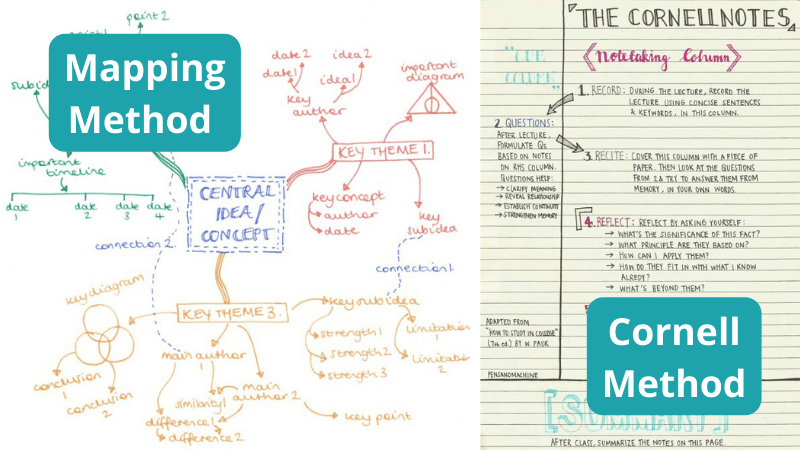 point 2
Mapping
Method
subid
important
timeline
date
1
date
2
date
3
date
4
CENTRAL
IDEA/
CONCEPT
connection 2.
date 2
date 1
idea 2
idea 1
key
author
important
diagram
KEY THEME 1.
key concept
author
date
key
subidea
connection 1.
key diagram
conclusion
1
conclusion
2
KEY THEME 3.
main author
1
similarity 1
difference 1
difference 2
main
author 2
key point
key subidea
strength 1
strength 2
strength 3
limitation
1
limitation
2
THE CORNELL NOTES
CUE
COLUMN
Notetaking Column
1. RECORD: DURING THE LECTURE, RECORD THE
LECTURE USING CONCISE SENTENCES
& KEYWORDS, IN THIS COLUMN.
2 QUESTIONS:
AFTER LECTURE,
FORMULATE Qs
BASED ON NOTES
ON RHS COLUMN.
QUESTIONS HELP:
→ CLARIFY MEANING
→ REVEAL RELATIONSHIP
→ ESTABLISH CONTINUITY
→ STRENGTHEN MEMORY
3. RECITE: COVER THIS COLUMN WITH A PIECE OF
PAPER. THEN LOOK AT THE QUESTIONS
FROM 2 & TRY TO ANSWER THEM FROM
MEMORY, IN YOUR OWN WORDS.
4. REFLECT: REFLECT BY ASKING YOURSELF:
→ WHAT'S THE SIGNIFICANCE OF THIS FACT?
→ WHAT PRINCIPLE ARE THEY BASED ON?
→ HOW CAN I APPLY THEM?
→ HOW DO THEY FIT IN WITH WHAT I KNOW
ALREDY?
→ WHAT'S BEYOND THEM?
ADAPTED FROM
"HOW TO STUDY IN COLLEGE"
(7th ed.) BY W. PAUK
PENSANDMACHINE
Cornell
Method
[SUMMARY]
AFTER CLASS, SUMMARIZE THE NOTES ON THIS PAGE.